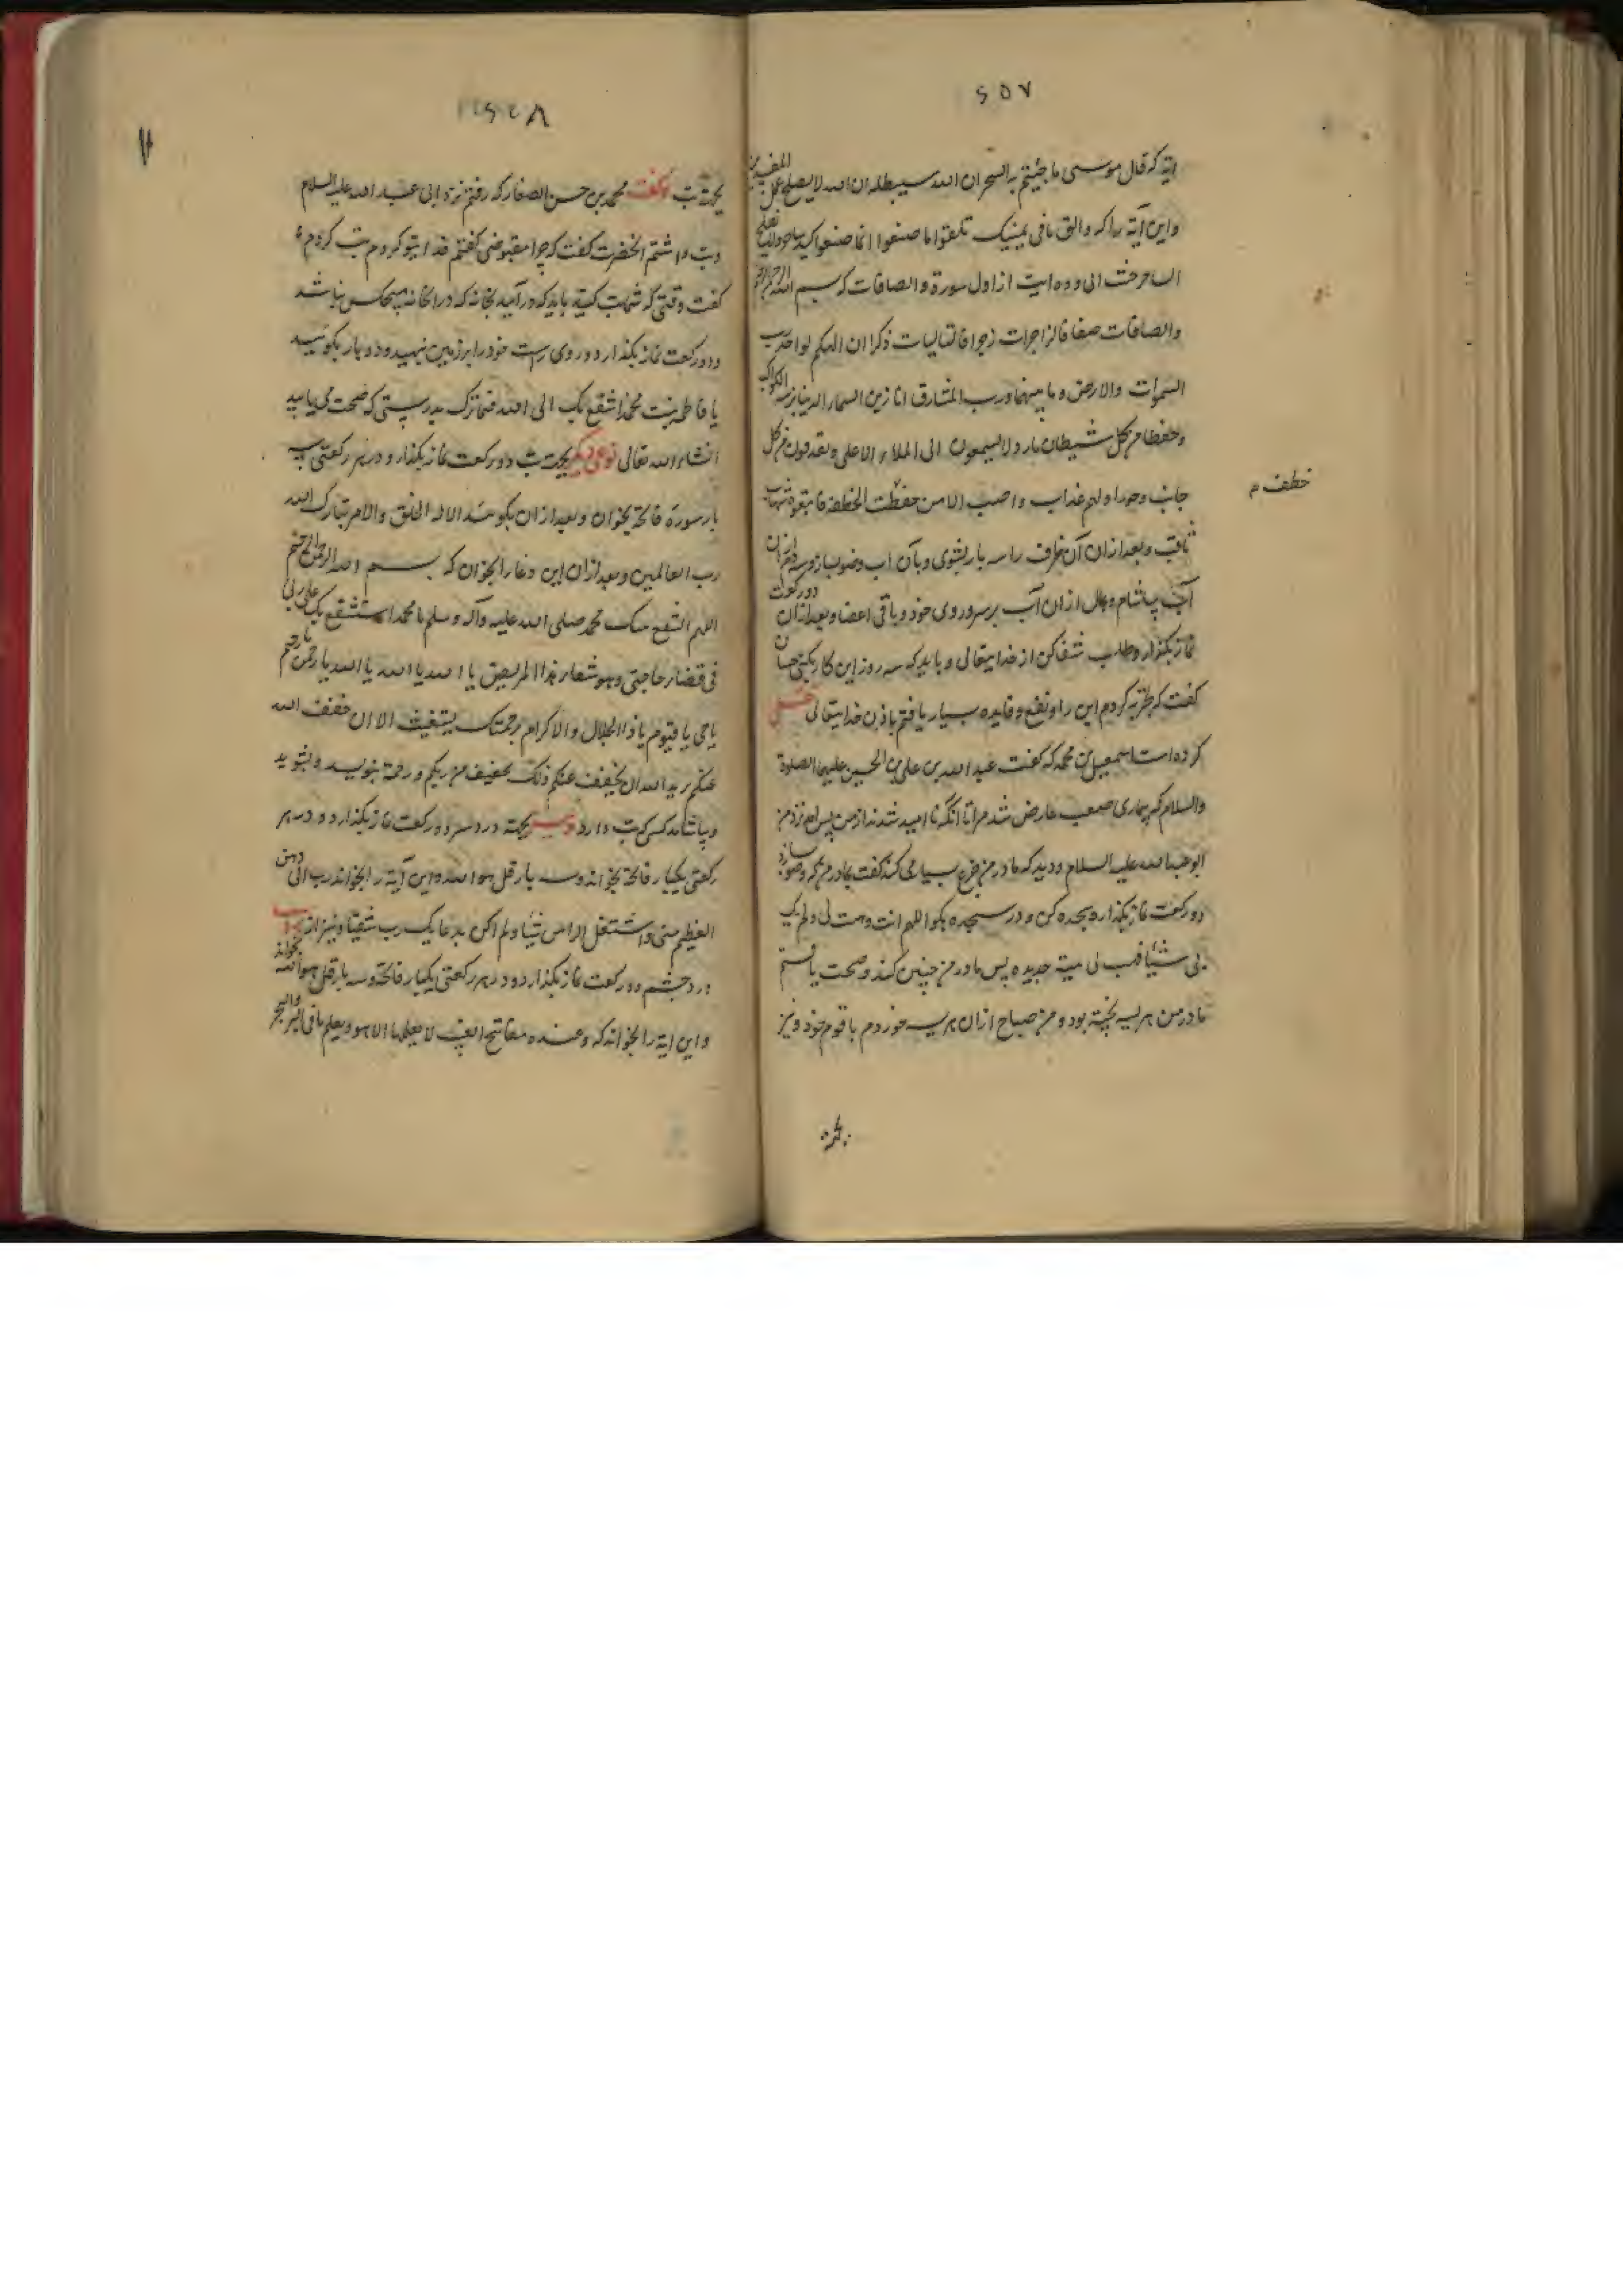 ۶۵۷
ایة که قال موسی ما جئتم به السحر ان الله سیبطله ان الله لا یصلح عمل المفسدین
واین آیة را که والق ما فی یمینک تلقف ما صنعوا انما صنعوا کید ساحر ولا یفلح
الساحر حیث اتی و ده ایت از اول سورة والصافات که بسم الله الرحمن الرحیم
والصافات صفا فالزاجرات زجرا فالتالیات ذکرا ان الهکم لواحد رب
السموات والارض و ما بینهما ورب المشارق انا زینا السماء الدنیا بزینة الکواکب
وحفظا من کل شیطان مارد لا یسمعون الی الملاء الاعلی ویقذفون من کل
جانب دحورا ولهم عذاب واصب الا من خطف الخطفة فاتبعه شهاب
خطف م
ثاقب و بعد ازان آن ظرف را سه بار بشوی وبآن اب وضو بساز وسه ازان
آب بیاشام و بمال ازان آب بر سر وروی خود و باقی اعضا و بعد ازان دو رکعت
نماز بگذار و طلب شفا کن از خدایتعالی و باید که سه روز این کار بکنی حسان
گفت که تجربه کردم این را و نفع و فایده بسیار یافتم باذن خدایتعالی
کرده است اسمعیل بن محمد که گفت عبد الله بن علی بن الحسین علیهما الصلوة
والسلام که بیماری صعب عارض شد مرا تا آنکه نا امید شدند از من پس امد نزد من
ابو عبد الله علیه السلام و دید که مادر من جزع بسیار می کند گفت بمادرم که وضو سازد
دو رکعت نماز بگذار و سجده کن و در سجده بگو اللهم انت وهبت لی ولم یک
بی شیئا فهب لی هبة جدیده پس مادر من چنین کند و صحت یافتم
مادر من هریسه پخته بود و من صباح ازان هریسه خوردم با قوم خود و نیز
بجهة
۶۵۸
بجهة تب گفت محمد بن حسن الصفار که رفتم نزد ابی عبد الله علیه السلام
وتب داشتم انحضرت گفت که چرا مقبوضی گفتم فدا بتو کردم تب کردم
گفت وقتی که تب کنید باید که در آمید بخانه که دران خانه هیچکس نباشد
و دو رکعت نماز بگذارد و روی راست خود را بر زمین نهید و ده بار بگوئید
یا فاطمه بنت محمد اشفع بک الی الله فما ترک بدرستی که صحت می یابید
انشاء الله تعالی نوعی دیگر بجهت تب دو رکعت نماز بگذار و در هر رکعتی سه
بار سورة فاتحة بخوان و بعد ازان بگو الا له الخلق والامر تبارک الله
رب العالمین و بعد ازان این دعا را بخوان که بسم الله الرحمن الرحیم
اللهم بمحمد صلی الله علیه وآله وسلم یا محمد استشفع بک علی ربی
فی قضاء حاجتی وهو شفاء هذا المریض یا الله یا الله یا الله یا رحمن یا رحیم
یا حی یا قیوم یا ذا الجلال والاکرام برحمتک یستغیث الان خفف الله
عنکم یرید الله ان یخفف عنکم ذلک تخفیف من ربکم ورحمة بنویسد و بشوید
و بیاشامد کسی که تب دارد بجهة درد سر دو رکعت نماز بگذارد و در هر
رکعتی یکبار فاتحة بخواند و سه بار قل هو الله و این آیة را بخواند رب انی وهن
العظم منی واشتعل الراس شیبا ولم اکن بدعایک رب شقیا و نیز از برای
درد چشم دو رکعت نماز بگذارد و در هر رکعتی یکبار فاتحة و سه بار قل هو الله بخواند
و این ایة را بخواند که وعنده مفاتح الغیب لا یعلمها الا هو ویعلم ما فی البر والبحر